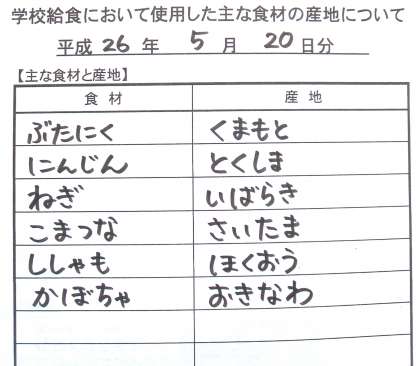 学校給食において使用した主な食材の産地について
平成 26 年 5 月 20 日分
【主な食材と産地】
食材 産地
ぶたにく くまもと
にんじん とくしま
ねぎ いばらき
こまつな さいたま
ししゃも ほくおう
かぼちゃ おきなわ